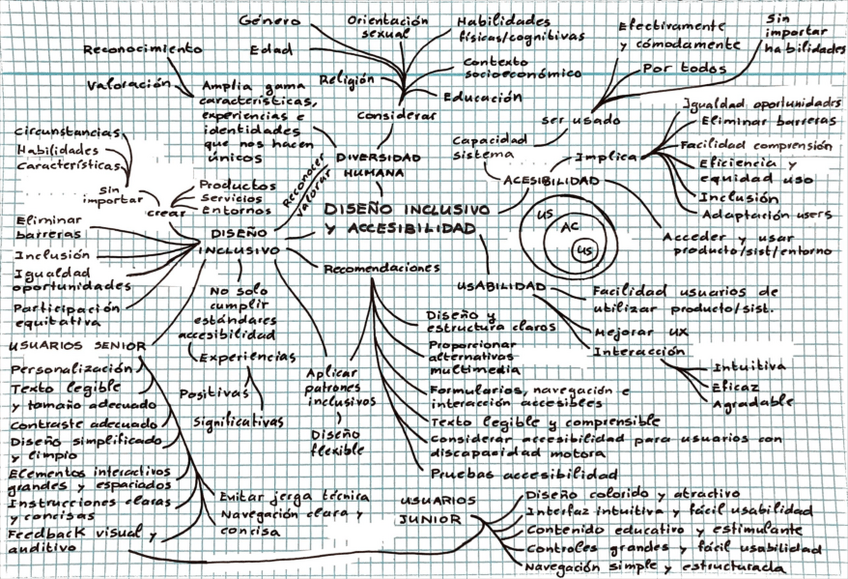 Género
Orientación
sexual
Habilidades
físicas/cognitivas
Edad
Religión
Contexto
socioeconómico
Educación
Considerar
Reconocimiento
Valoración
Amplia gama
características,
experiencias e
identidades
que nos hacen
únicos
DIVERSIDAD
HUMANA
Reconocer
valorar
Efectivamente
y cómodamente
Sin
importar
habilidades
Por todos
ser usado
Capacidad
sistema
Implica
Igualdad oportunidadrs
Eliminar barreras
Facilidad comprensión
Eficiencia y
equidad uso
Inclusión
Adaptación users
ACESIBILIDAD
Acceder y usar
producto/sist/entorno
US
AC
US
DISEÑO INCLUSIVO
y ACCESIBILIDAD
Circunstancias
Habilidades
Características
Sin
importar
crear
Productos
Servicios
Entornos
DISEÑO
INCLUSIVO
Eliminar
barreras
Inclusión
Igualdad
oportunidades
Participación
equitativa
No solo
cumplir
estándares
accesibilidad
Experiencias
Positivas
Significativas
Aplicar
patrones
inclusivos
Diseño
flexible
Recomendaciones
Diseño y
estructura claros
Proporcionar
alternativas
multimedia
Formularios, navegación e
interacción accesibles
Texto legible y comprensible
Considerar accesibilidad para usuarios con
discapacidad motora
Pruebas accesibilidad
USABILIDAD
Facilidad usuarios de
utilizar producto/sist.
Mejorar UX
Interacción
Intuitiva
Eficaz
Agradable
USUARIOS SENIOR
Personalización
Texto legible
y tamaño adecuado
Contraste adecuado
Diseño simplificado
y limpio
Elementos interactivos
grandes y espaciados
Instrucciones claras
y concisas
Feedback visual y
auditivo
Evitar jerga técnica
Navegación clara y
concisa
USUARIOS
JUNIOR
Diseño colorido y atractivo
Interfaz intuitiva y fácil usabilidad
Contenido educativo y estimulante
Controles grandes y fácil usabilidad
Navegación simple y estructurada